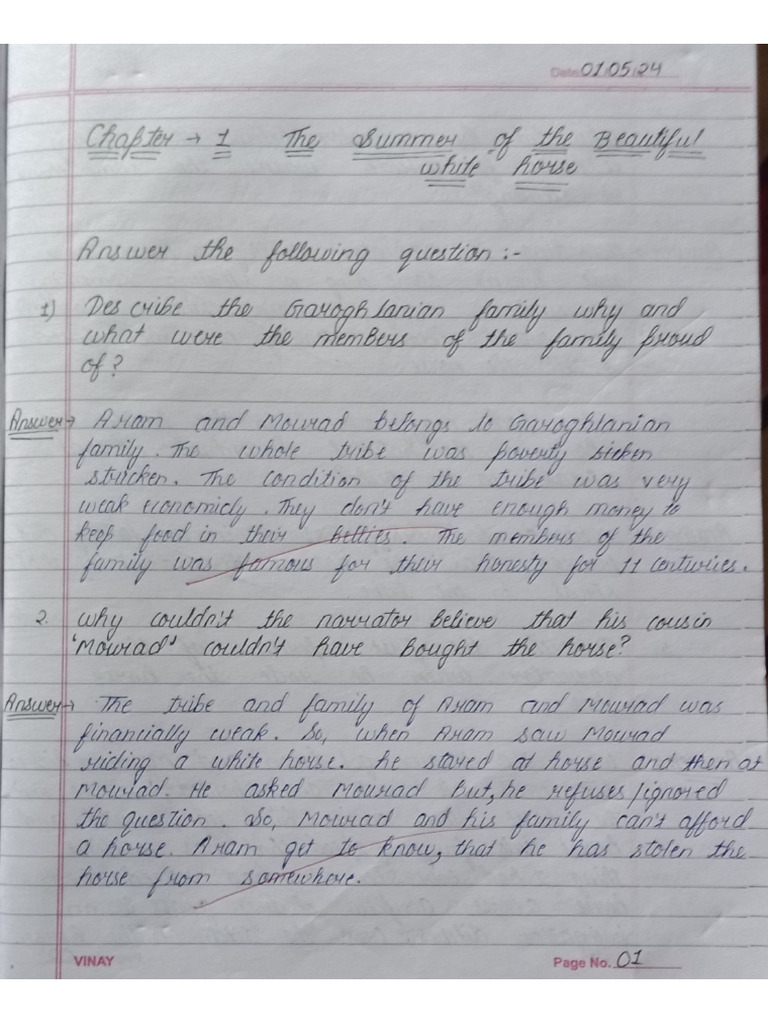 Date 01/05/24
Chapter → 1 The Summer of the Beautiful
white horse
Answer the following question :-
1) Describe the Garoghlanian family why and
what were the members of the family proud
of?
Answer → Aram and Mourad belongs to Garoghlanian
family. The whole tribe was poverty sicken
stricken. The condition of the tribe was very
weak economicly. They don't have enough money to
keep food in their bellies. The members of the
family was famous for their honesty for 11 centuries.
2. why couldn't the narrator believe that his cousin
'Mourad' couldn't have bought the horse?
Answer → The tribe and family of Aram and Mourad was
financially weak. So, when Aram saw Mourad
riding a white horse. he stared at horse and then at
Mourad. He asked Mourad but, he refuses/ignored
the question. So, Mourad and his family can't afford
a horse. Aram get to know, that he has stolen the
horse from somewhere.
VINAY Page No. 01